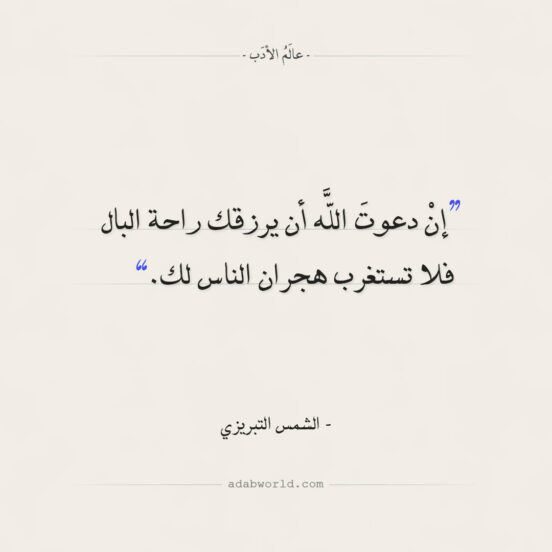 - عالَمُ الأدَب -
”إنْ دعوتَ اللَّه أن يرزقك راحة البال
فلا تستغرب هجران الناس لك.“
- الشمس التبريزي
adabworld.com